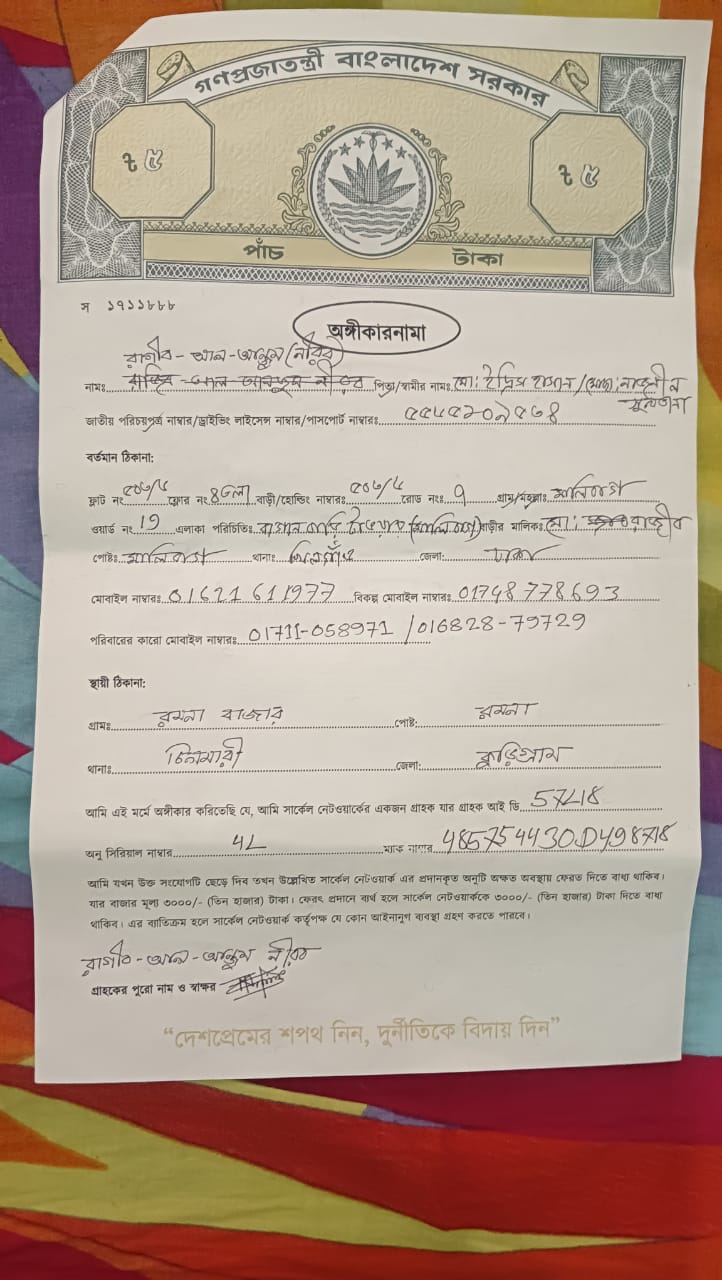 গণপ্রজাতন্ত্রী বাংলাদেশ সরকার
৳ ৫
৳ ৫
পাঁচ টাকা
স ১৭১১৮৮৮
অঙ্গীকারনামা
রাগীব-আল-আঞ্জুম (নীরব)
নামঃ পিতা/স্বামীর নামঃ মো: ইদ্রিস হাসান/মোছা:
জাতীয় পরিচয়পত্র নাম্বার/ড্রাইভিং লাইসেন্স নাম্বার/পাসপোর্ট নাম্বারঃ
বর্তমান ঠিকানা:
ফ্লাট নং ৫০৬/৫ ফ্লোর নং ৪তলা বাড়ী/হোল্ডিং নাম্বারঃ ৫০৬/৫ রোড নংঃ গ্রাম/মহল্লাঃ মালিবাগ
ওয়ার্ড নং 19 এলাকা পরিচিতিঃ (মালিবাগ) বাড়ীর মালিকঃ মো:
পোষ্টঃ মালিবাগ থানাঃ খিলগাঁও জেলা: ঢাকা
মোবাইল নাম্বারঃ 01621611977 বিকল্প মোবাইল নাম্বারঃ 01748778693
পরিবারের কারো মোবাইল নাম্বারঃ 01711-058971 /016828-79729
স্থায়ী ঠিকানা:
গ্রামঃ রমনা বাজার পোষ্ট: রমনা
থানাঃ চিলমারী জেলা: কুড়িগ্রাম
আমি এই মর্মে অঙ্গীকার করিতেছি যে, আমি সার্কেল নেটওয়ার্কের একজন গ্রাহক যার গ্রাহক আই ডি
অনু সিরিয়াল নাম্বার 4L ম্যাক নাম্বার
আমি যখন উক্ত সংযোগটি ছেড়ে দিব তখন উল্লেখিত সার্কেল নেটওয়ার্ক এর প্রদানকৃত অনুটি অক্ষত অবস্থায় ফেরত দিতে বাধ্য থাকিব।
যার বাজার মূল্য ৩০০০/- (তিন হাজার) টাকা। ফেরৎ প্রদানে ব্যর্থ হলে সার্কেল নেটওয়ার্ককে ৩০০০/- (তিন হাজার) টাকা দিতে বাধ্য
থাকিব। এর ব্যতিক্রম হলে সার্কেল নেটওয়ার্ক কর্তৃপক্ষ যে কোন আইনানুগ ব্যবস্থা গ্রহণ করতে পারবে।
রাগীব-আল-আঞ্জুম নীরব
গ্রাহকের পুরো নাম ও স্বাক্ষর
“দেশপ্রেমের শপথ নিন, দুর্নীতিকে বিদায় দিন”